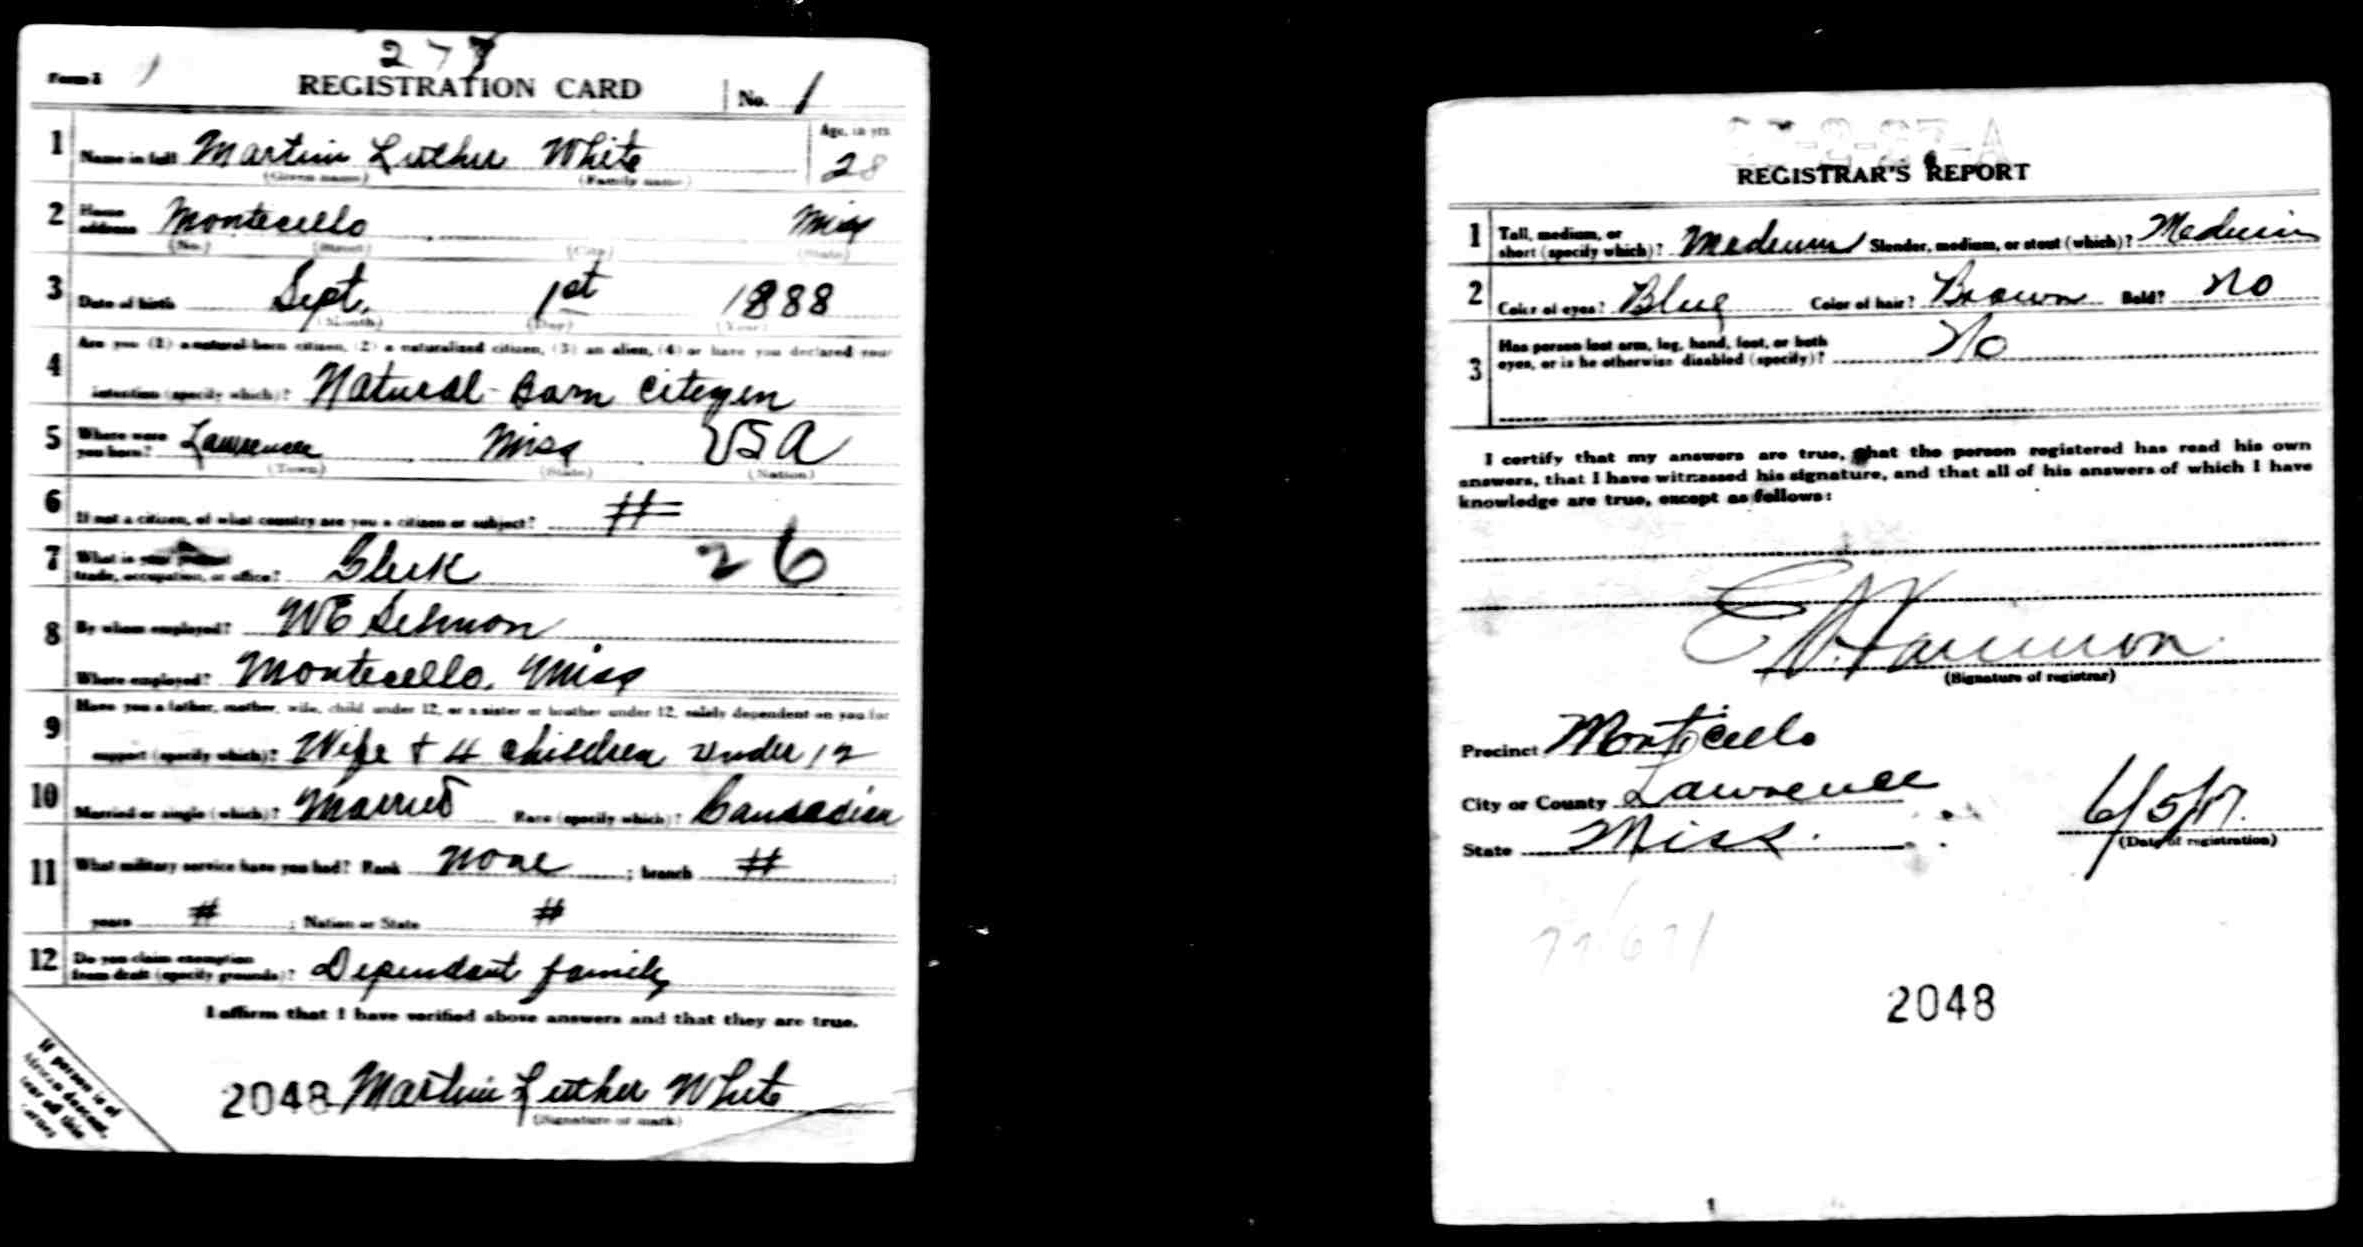 277
Form 1 1 REGISTRATION CARD No. 1
1 Name in full Martin Luther White Age, in yrs 28
(Given name) (Family name)
2 Home address Monticello Miss
(No.) (Street) (City) (State)
3 Date of birth Sept. 1st 1888
(Month) (Day) (Year)
Are you (1) a natural-born citizen, (2) a naturalized citizen, (3) an alien, (4) or have you declared your
4 intention (specify which)? Natural-Born Citizen
5 Where were you born? Lawrence Miss USA
(Town) (State) (Nation)
6 If not a citizen, of what country are you a citizen or subject? #
7 What is your present
trade, occupation, or office? Clerk 26
8 By whom employed? WE Selmon
Where employed? Monticello, Miss
Have you a father, mother, wife, child under 12, or a sister or brother under 12, solely dependent on you for
9 support (specify which)? Wife + 4 children under 12
10 Married or single (which)? Married Race (specify which)? Caucasian
11 What military service have you had? Rank None ; branch # ;
years # ; Nation or State #
12 Do you claim exemption
from draft (specify grounds)? Dependant family
I affirm that I have verified above answers and that they are true.
2048 Martin Luther White
(Signature or mark)
If person is of
African descent,
tear off this
corner
-A
REGISTRAR'S REPORT
1 Tall, medium, or
short (specify which)? Medium Slender, medium, or stout (which)? Medium
2 Color of eyes? Blue Color of hair? Brown Bald? No
3 Has person lost arm, leg, hand, foot, or both
eyes, or is he otherwise disabled (specify)? No
I certify that my answers are true, that the person registered has read his own
answers, that I have witnessed his signature, and that all of his answers of which I have
knowledge are true, except as follows:
(Signature of registrar)
Precinct Monticello
City or County Lawrence
State Miss. 6/5/17.
(Date of registration)
2048